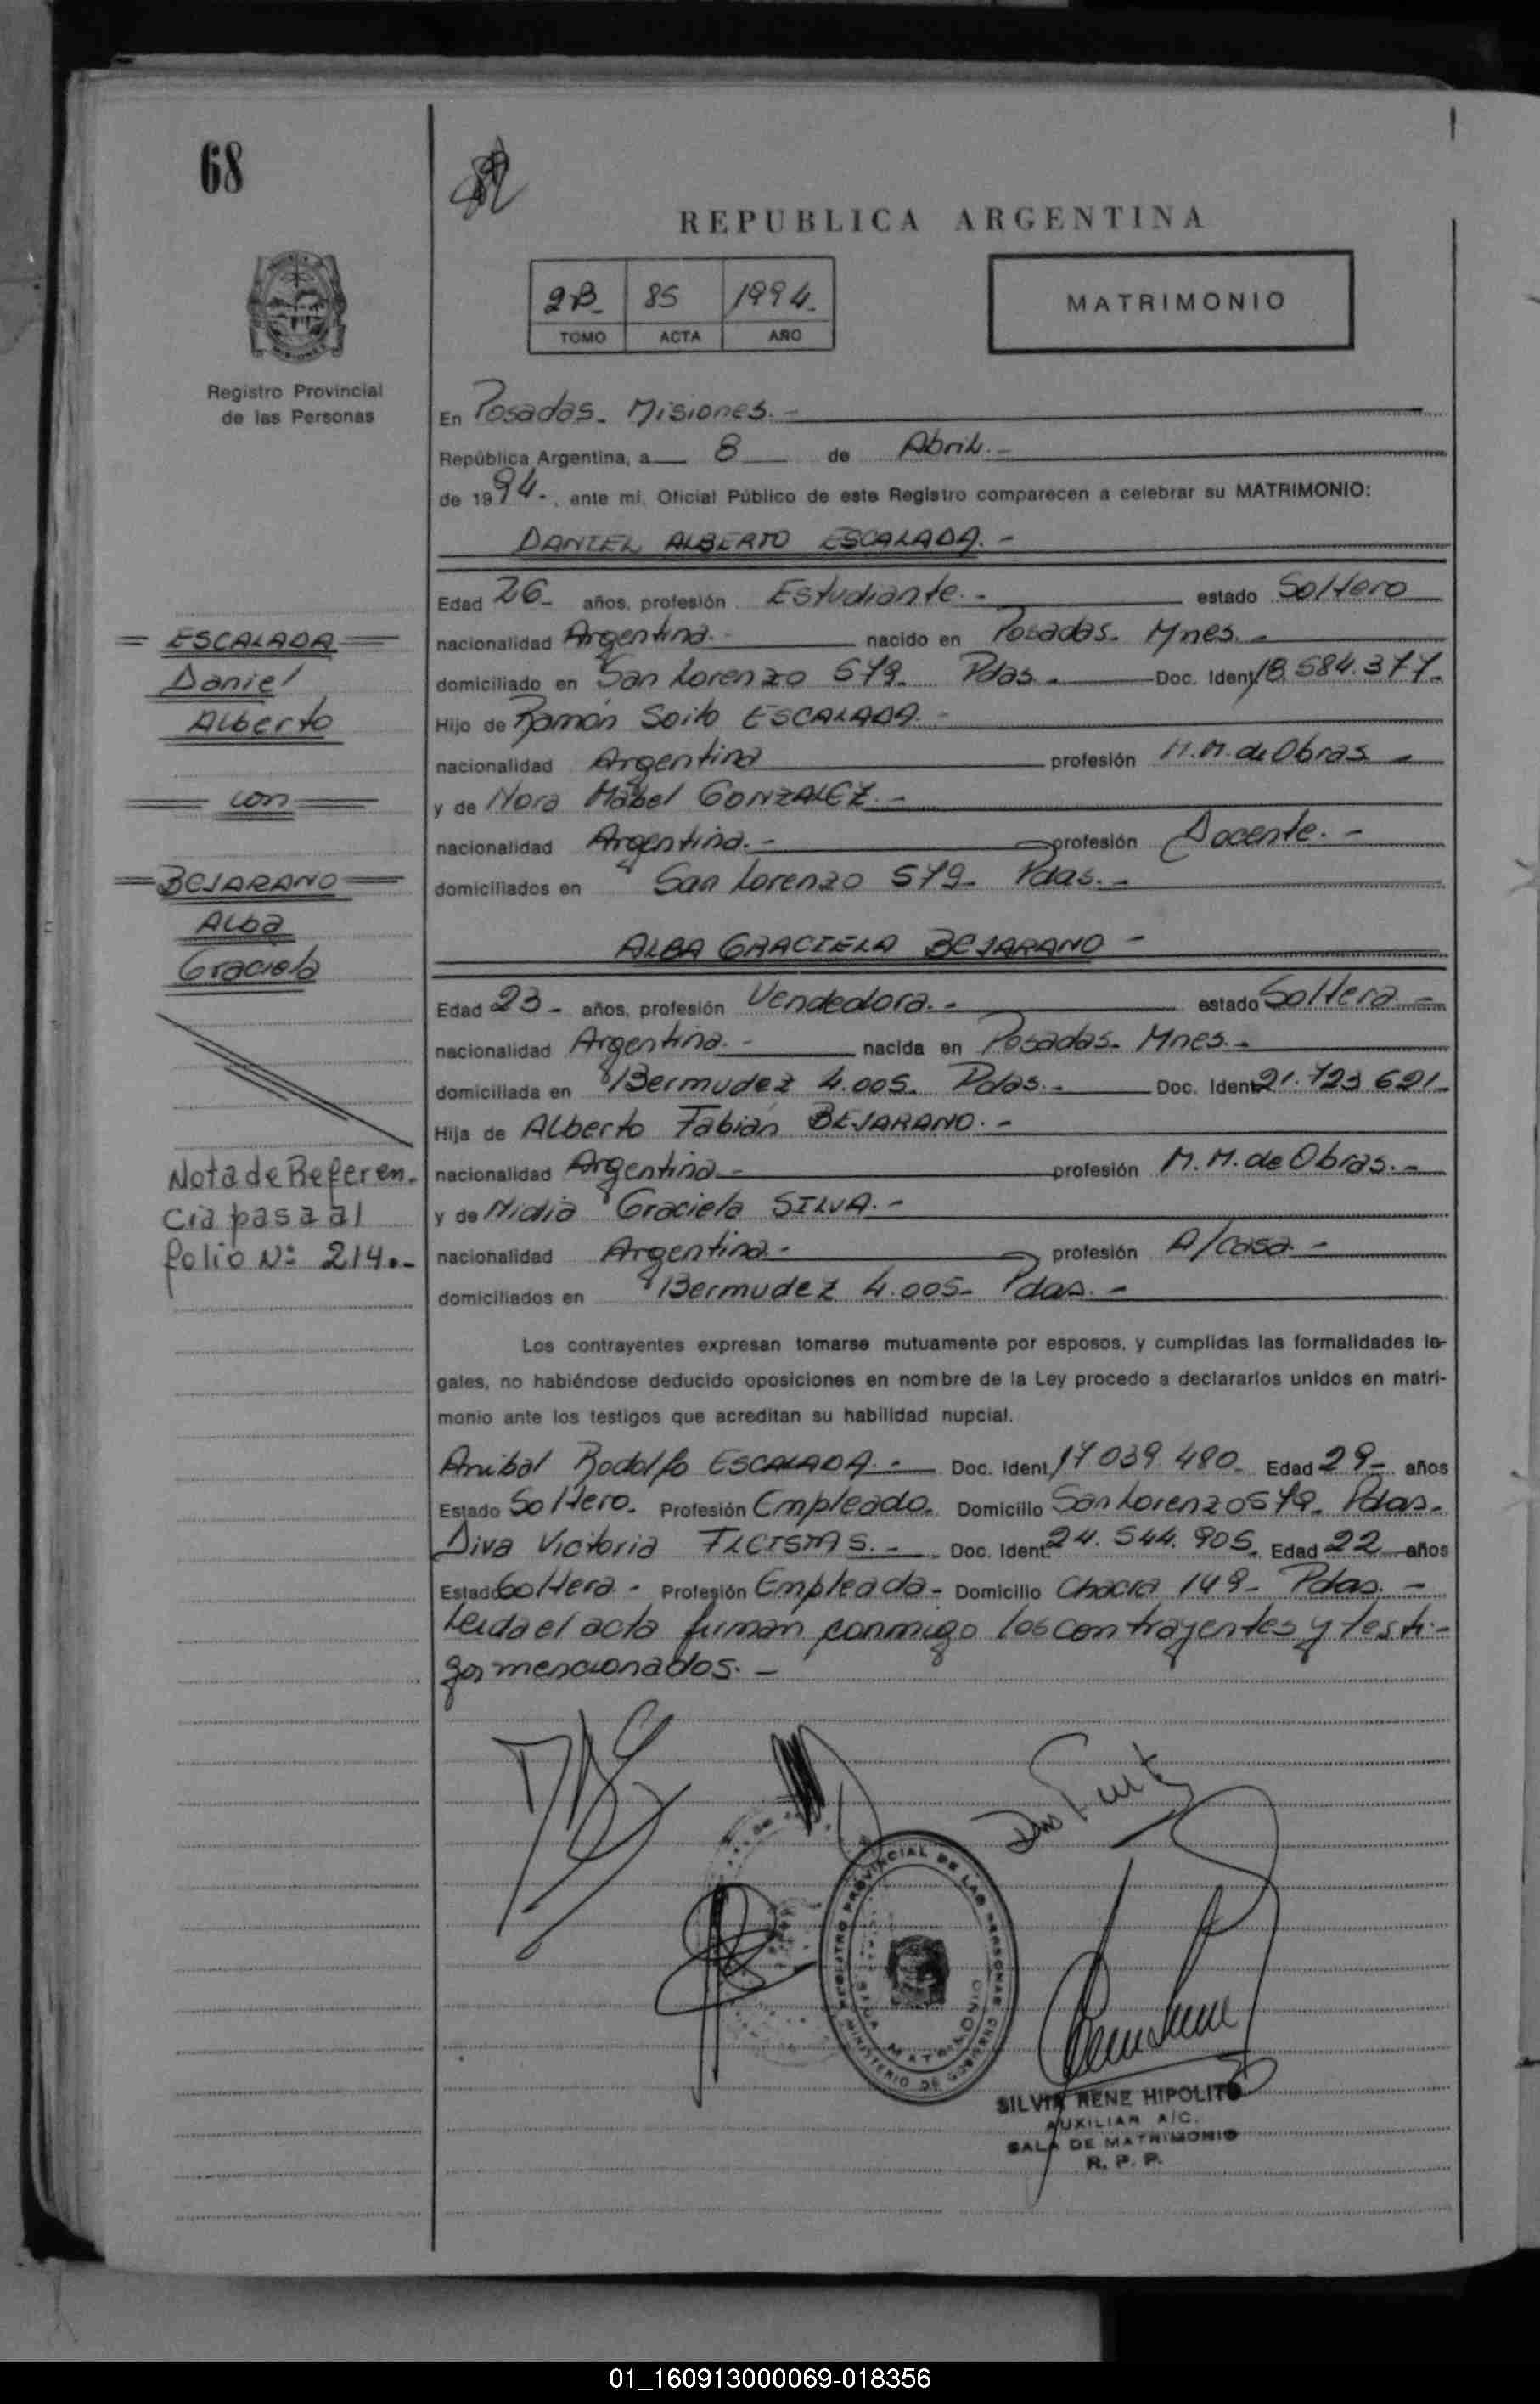 68
REPUBLICA ARGENTINA
2B- 85 1994.-
TOMO ACTA AÑO
MATRIMONIO
Registro Provincial
de las Personas
En Posadas. Misiones.-
República Argentina, a 8 de Abril.-
de 1994.-, ante mí, Oficial Público de este Registro comparecen a celebrar su MATRIMONIO:
DANIEL ALBERTO ESCALADA.-
Edad 26- años, profesión Estudiante.- estado Soltero
nacionalidad Argentina.- nacido en Posadas. Mnes.-
domiciliado en San Lorenzo 579- Pdas.- Doc. Ident. 18.584.377.
Hijo de Ramón Soilo ESCALADA.-
nacionalidad Argentina profesión M.M. de Obras.-
y de Nora Mabel GONZALEZ.-
nacionalidad Argentina.- profesión Docente.-
domiciliados en San Lorenzo 579- Pdas.-
ALBA GRACIELA BEJARANO-
Edad 23- años, profesión Vendedora.- estado Soltera.-
nacionalidad Argentina.- nacida en Posadas. Mnes.-
domiciliada en Bermudez 4.005- Pdas.- Doc. Ident. 21.723.621-
Hija de Alberto Fabián BEJARANO.-
nacionalidad Argentina- profesión M.M. de Obras.-
y de Nidia Graciela SILVA.-
nacionalidad Argentina.- profesión A/casa.-
domiciliados en Bermudez 4.005- Pdas.-
Los contrayentes expresan tomarse mutuamente por esposos, y cumplidas las formalidades le-
gales, no habiéndose deducido oposiciones en nombre de la Ley procedo a declararlos unidos en matri-
monio ante los testigos que acreditan su habilidad nupcial.
Anibal Rodolfo ESCALADA.- Doc. Ident. 17.039.480- Edad 29- años
Estado Soltero. Profesión Empleado. Domicilio San Lorenzo 579- Pdas.
Diva Victoria Doc. Ident. 24.544.905. Edad 22 años
Estado Soltera.- Profesión Empleada- Domicilio Chacra 149- Pdas.-
Leida el acta firman conmigo los contrayentes y testi-
gos mencionados.-
ESCALADA
Daniel
Alberto
con
BEJARANO
Alba
Graciela
Nota de Referen-
cia pasa al
folio Nº 214.-
REGISTRO PROVINCIAL DE LAS PERSONAS
SALA MATRIMONIO
MINISTERIO DE GOBIERNO
SILVIA RENE HIPOLITO
AUXILIAR A/C.
SALA DE MATRIMONIO
R. P. P.
01_160913000069-018356